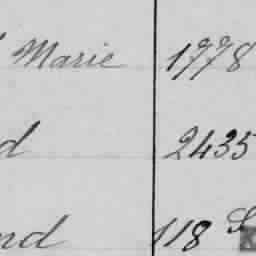 Marie 1778
d 2435
nd 118 S